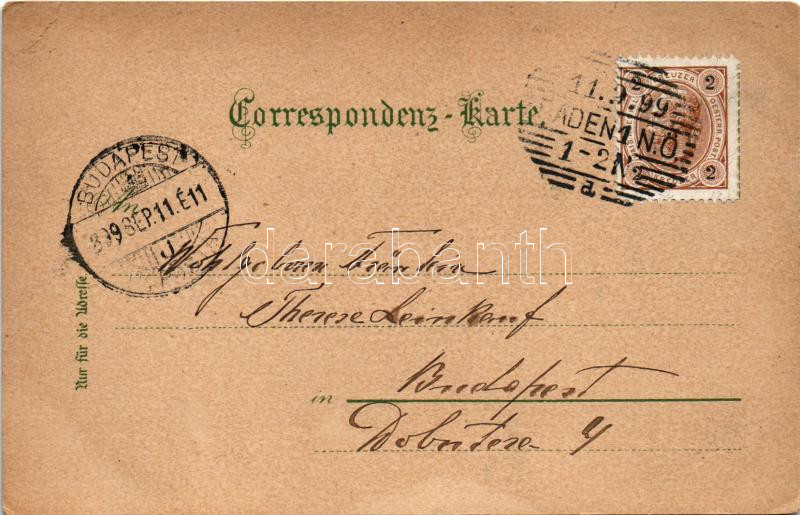 Correspondenz-Karte.
11.9.99
BADEN 1 N.Ö.
1-2N
a
2 KREUZER 2
OESTERR. POST
2 2
BUDAPEST
899 SEP.11.É11
J
An
Wohlgeboren Fräulein
Therese Leinkauf
in Budapest
Nur für die Adresse.
darabanth